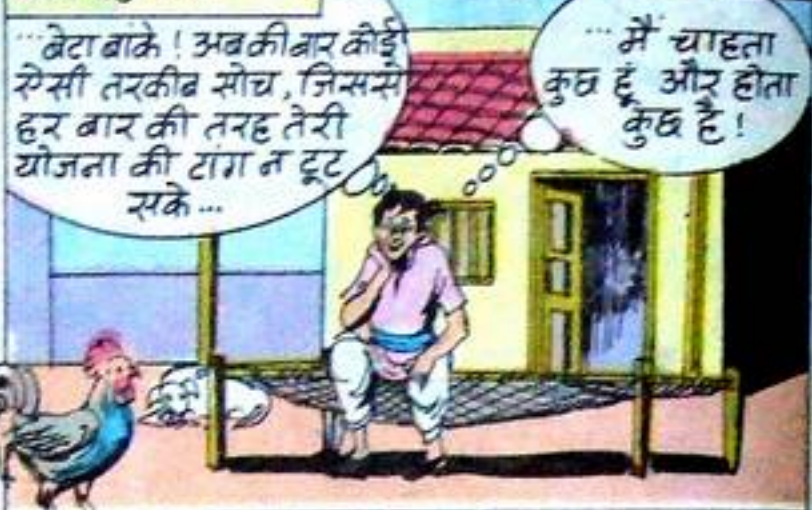 ...बेटा बांके ! अब की बार कोई
ऐसी तरकीब सोच, जिससे
हर बार की तरह तेरी
योजना की टांग न टूट
सके...
...मैं चाहता
कुछ हूं और होता
कुछ है !